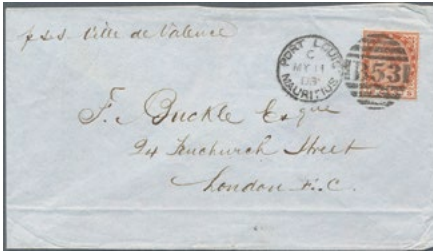 pss Ville de Valence
PORT LOUIS
C
MY 11
MAURITIUS
B53
F. Buckle Esque
24 Fenchurch Street
London E.C.